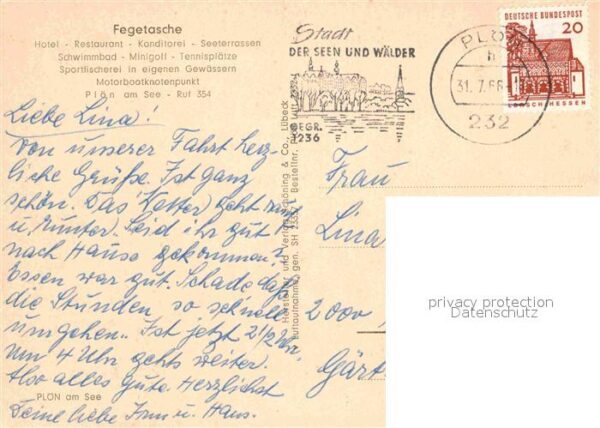 Fegetasche
Hotel - Restaurant - Konditorei - Seeterrassen
Schwimmbad - Minigolf - Tennisplätze
Sportfischerei in eigenen Gewässern
Motorbootknotenpunkt
Plön am See - Ruf 354
Liebe Lina!
Von unserer Fahrt herz-
liche Grüße. Ist ganz
schön. Das Wetter geht rauf
u. runter. Seid ihr gut
nach Hause gekommen?
Essen war gut. Schade daß
die Stunden so schnell
umgehen. Ist jetzt 2 1/2 Uhr.
um 4 Uhr gehts weiter.
Also alles Gute. Herzlichst
Deine liebe Irm u. Hans.
PLÖN am See
Hersteller und Verlag Schöning & Co., Lübeck
Luftaufnahme gen. SH
Bestellnr.
Stadt
DER SEEN UND WÄLDER
GEGR.
1236
PLÖN
h
31.7.66
232
DEUTSCHE BUNDESPOST
20
LORSCH/HESSEN
Frau
Lina
2000
Gärt
privacy protection
Datenschutz